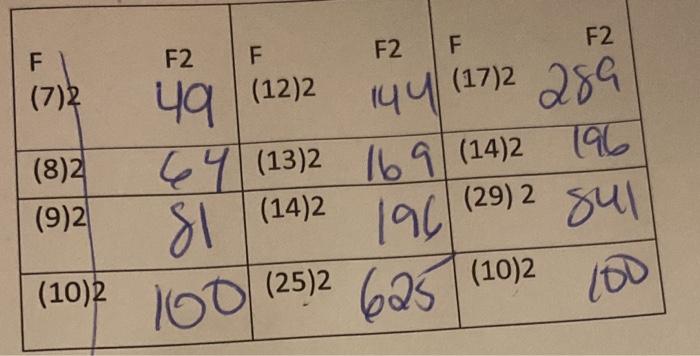 F F2 F F2 F F2
(7)2 49 (12)2 144 (17)2 289
(8)2 64 (13)2 169 (14)2 196
(9)2 81 (14)2 196 (29) 2 841
(10)2 100 (25)2 625 (10)2 100